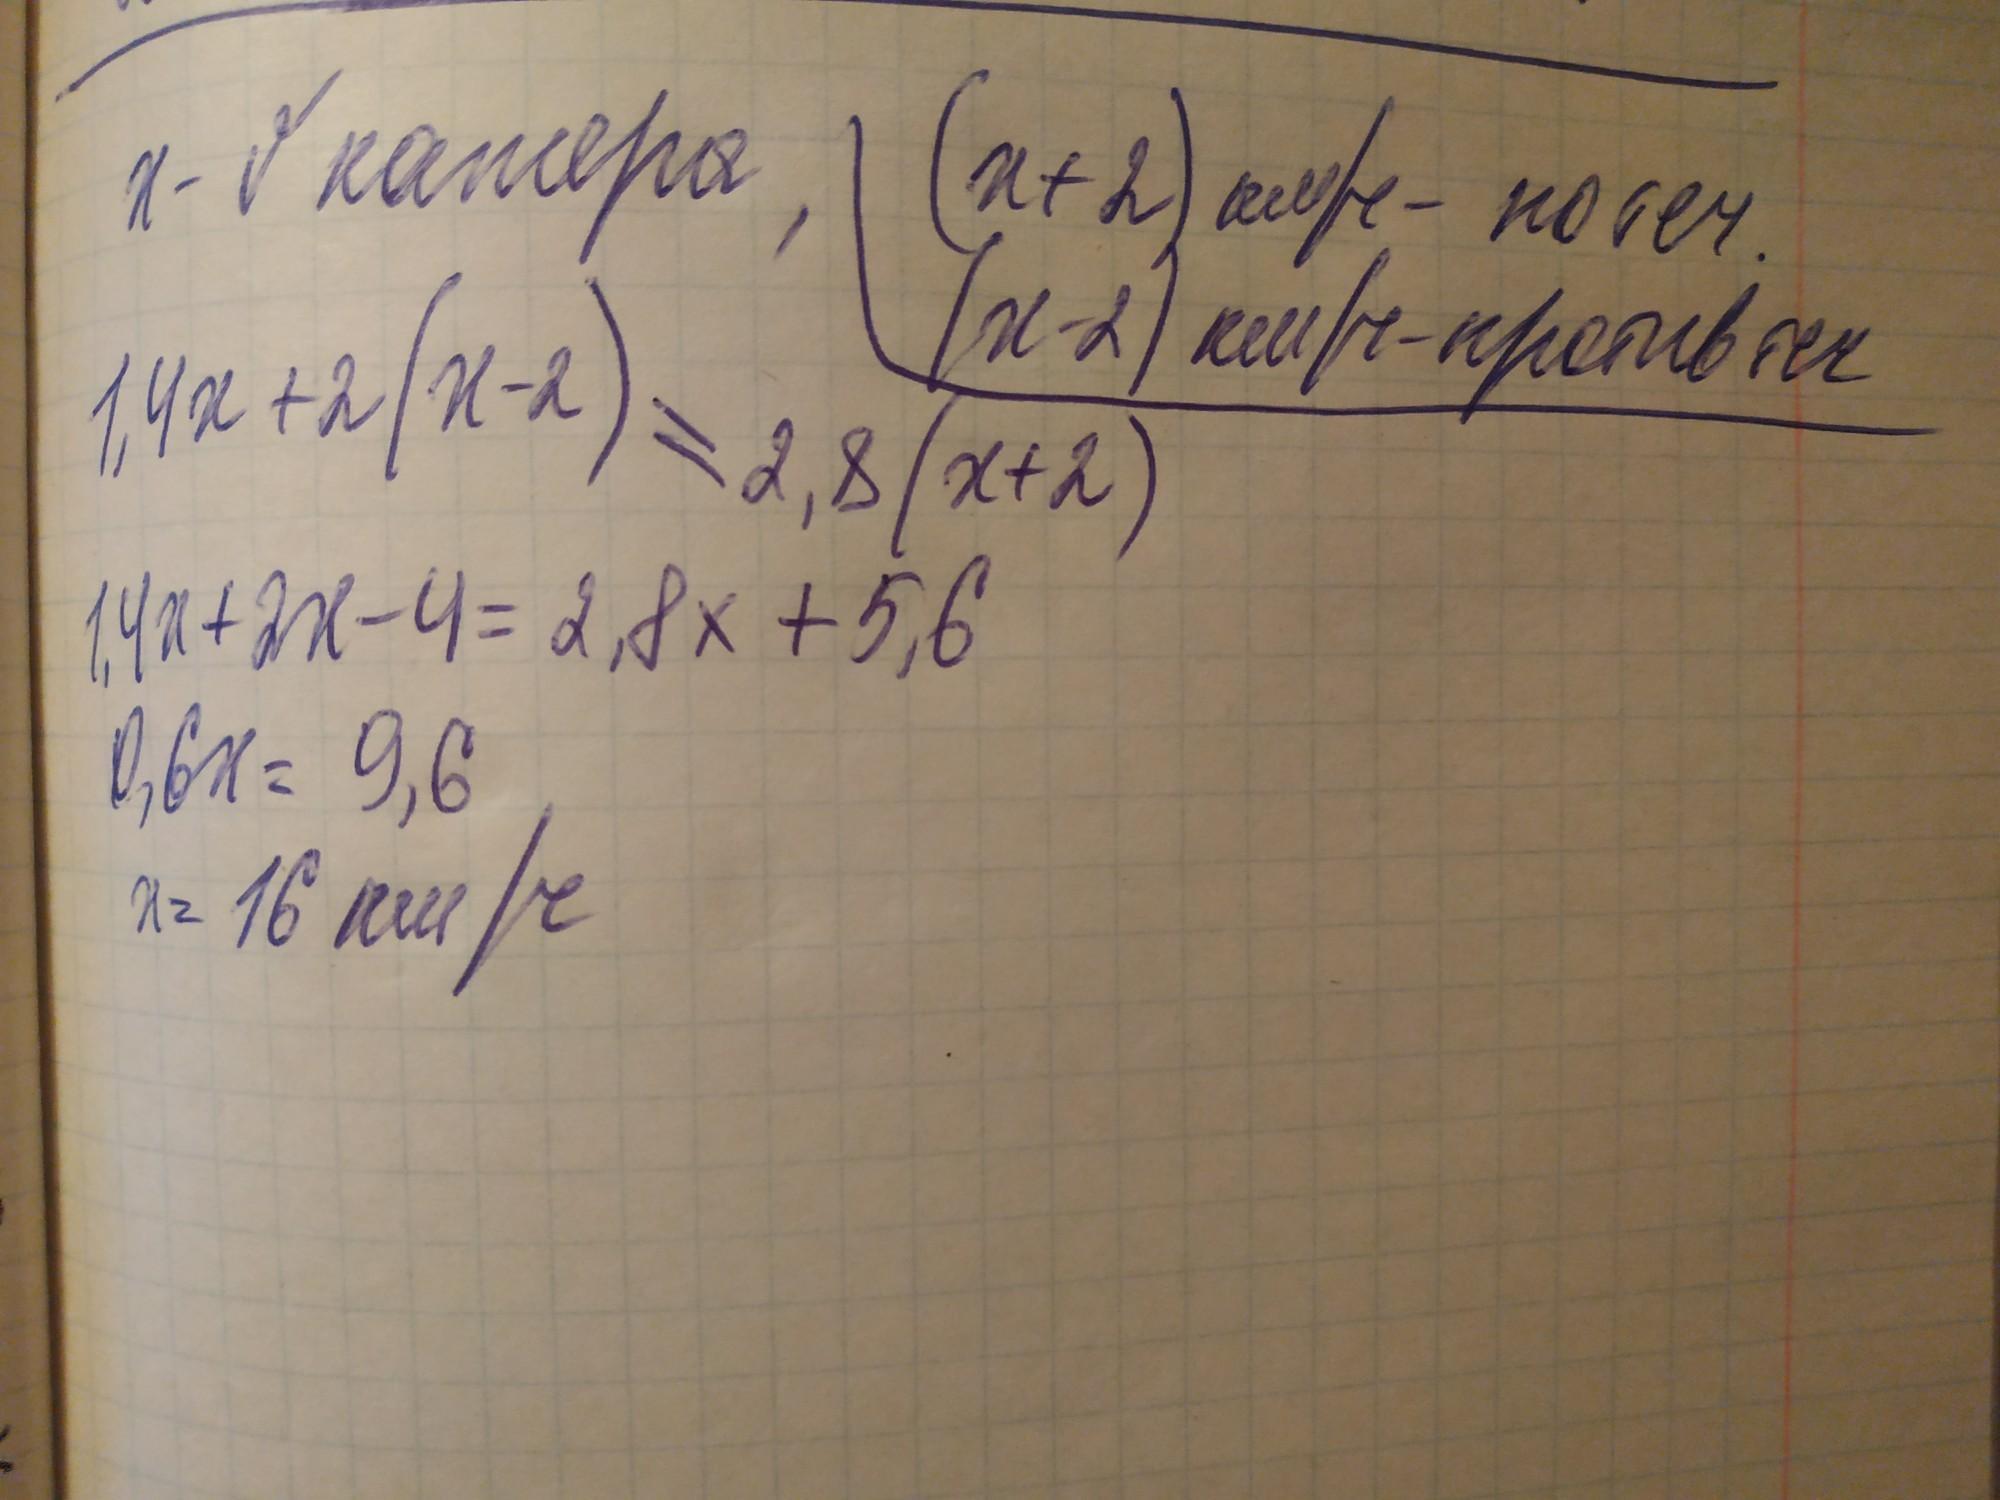 x - V катера, (x+2) км/ч - по теч.
(x-2) км/ч - против теч
1,4x + 2(x-2) = 2,8(x+2)
1,4x + 2x - 4 = 2,8x + 5,6
0,6x = 9,6
x = 16 км/ч